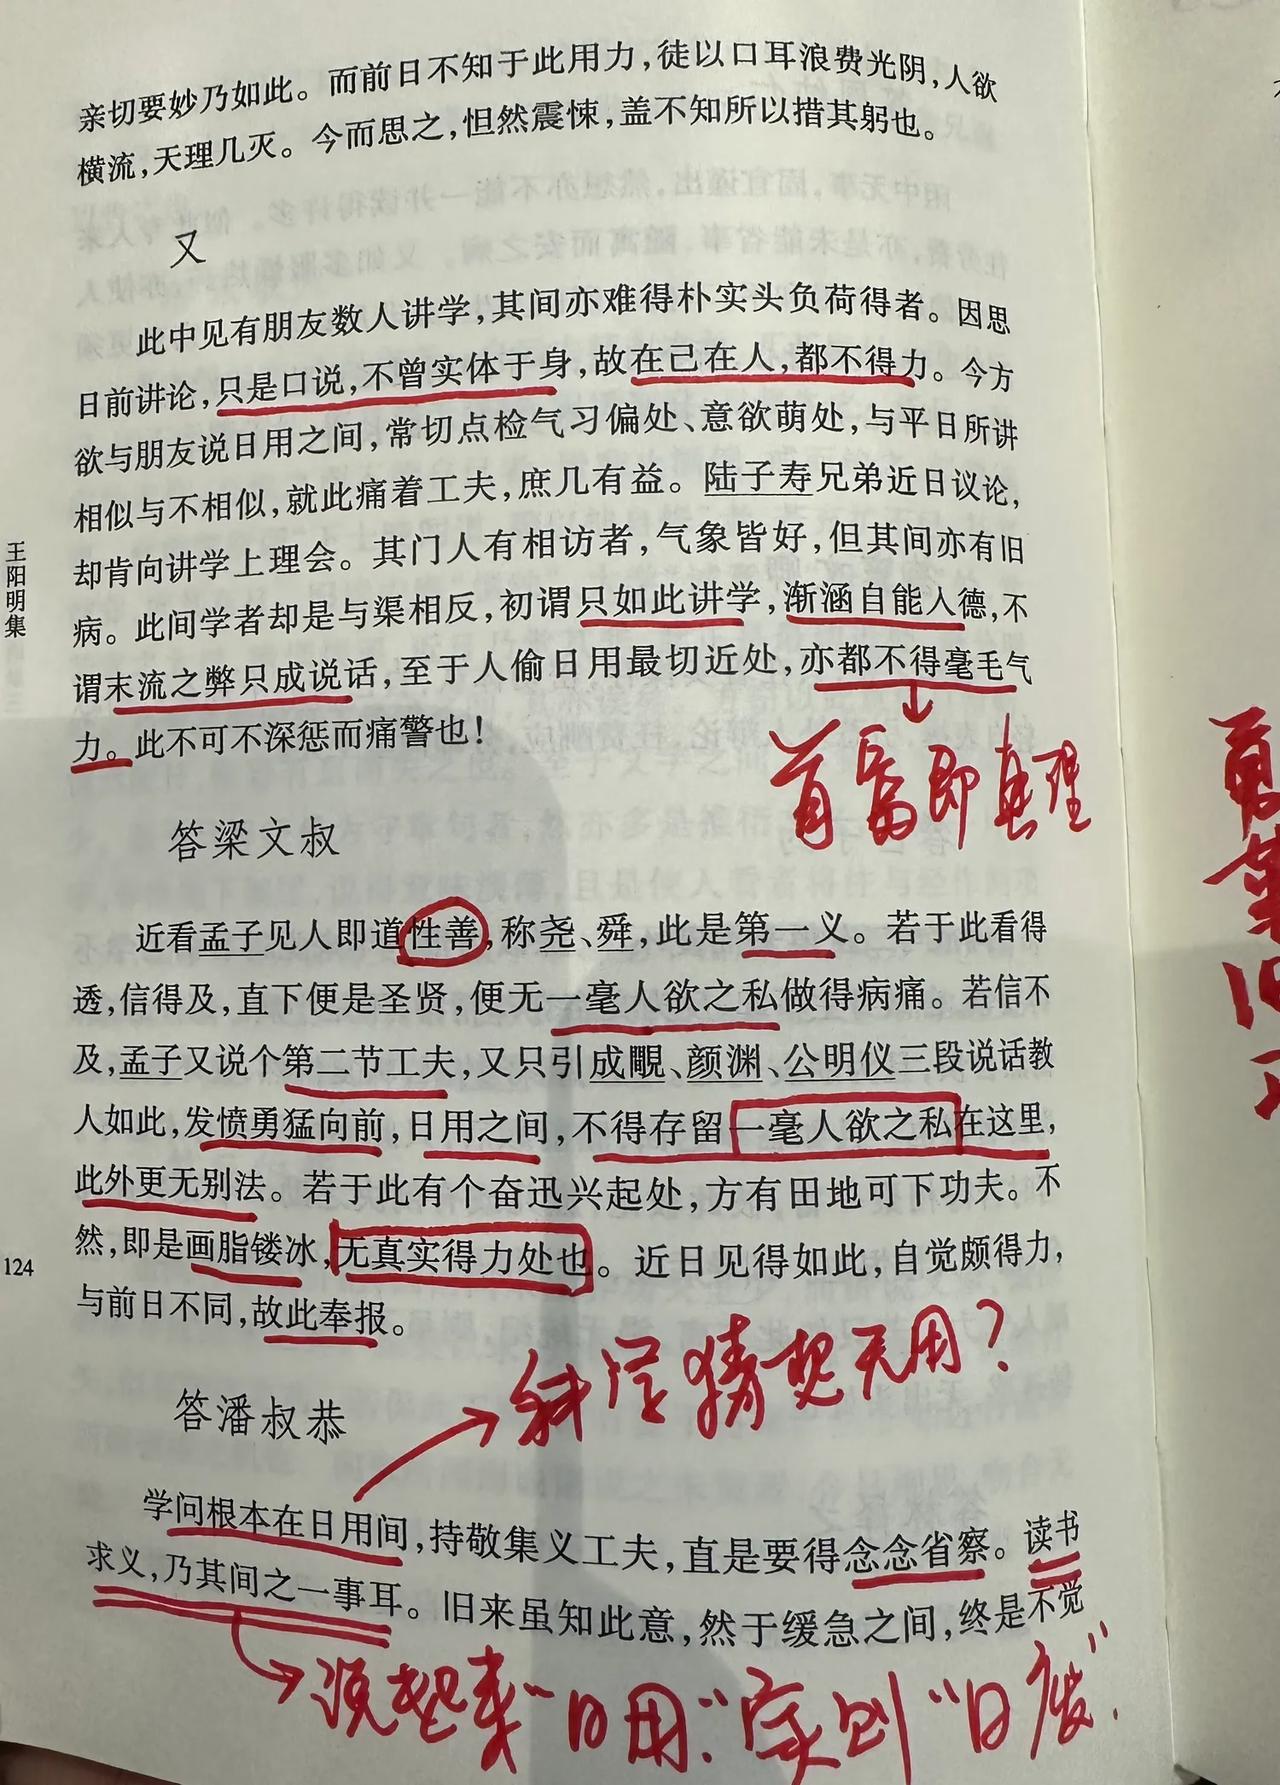 亲切要妙乃如此。而前日不知于此用力，徒以口耳浪费光阴，人欲
横流，天理几灭。今而思之，怛然震悚，盖不知所以措其躬也。
又
此中见有朋友数人讲学，其间亦难得朴实头负荷得者。因思
日前讲论，只是口说，不曾实体于身，故在己在人，都不得力。今方
欲与朋友说日用之间，常切点检气习偏处、意欲萌处，与平日所讲
相似与不相似，就此痛着工夫，庶几有益。陆子寿兄弟近日议论，
却肯向讲学上理会。其门人有相访者，气象皆好，但其间亦有旧
病。此间学者却是与渠相反，初谓只如此讲学，渐涵自能入德，不
谓末流之弊只成说话，至于人伦日用最切近处，亦都不得毫毛气
力。此不可不深惩而痛警也！
首富即真理
答梁文叔
近看孟子见人即道性善，称尧、舜，此是第一义。若于此看得
透，信得及，直下便是圣贤，便无一毫人欲之私做得病痛。若信不
及，孟子又说个第二节工夫，又只引成覵、颜渊、公明仪三段说话教
人如此，发愤勇猛向前，日用之间，不得存留一毫人欲之私在这里，
此外更无别法。若于此有个奋迅兴起处，方有田地可下功夫。不
然，即是画脂镂冰，无真实得力处也。近日见得如此，自觉颇得力，
与前日不同，故此奉报。
科学猜想无用？
答潘叔恭
学问根本在日用间，持敬集义工夫，直是要得念念省察。读书
求义，乃其间之一事耳。旧来虽知此意，然于缓急之间，终是不觉
说起来“日用”实则“日废”
王阳明集
124